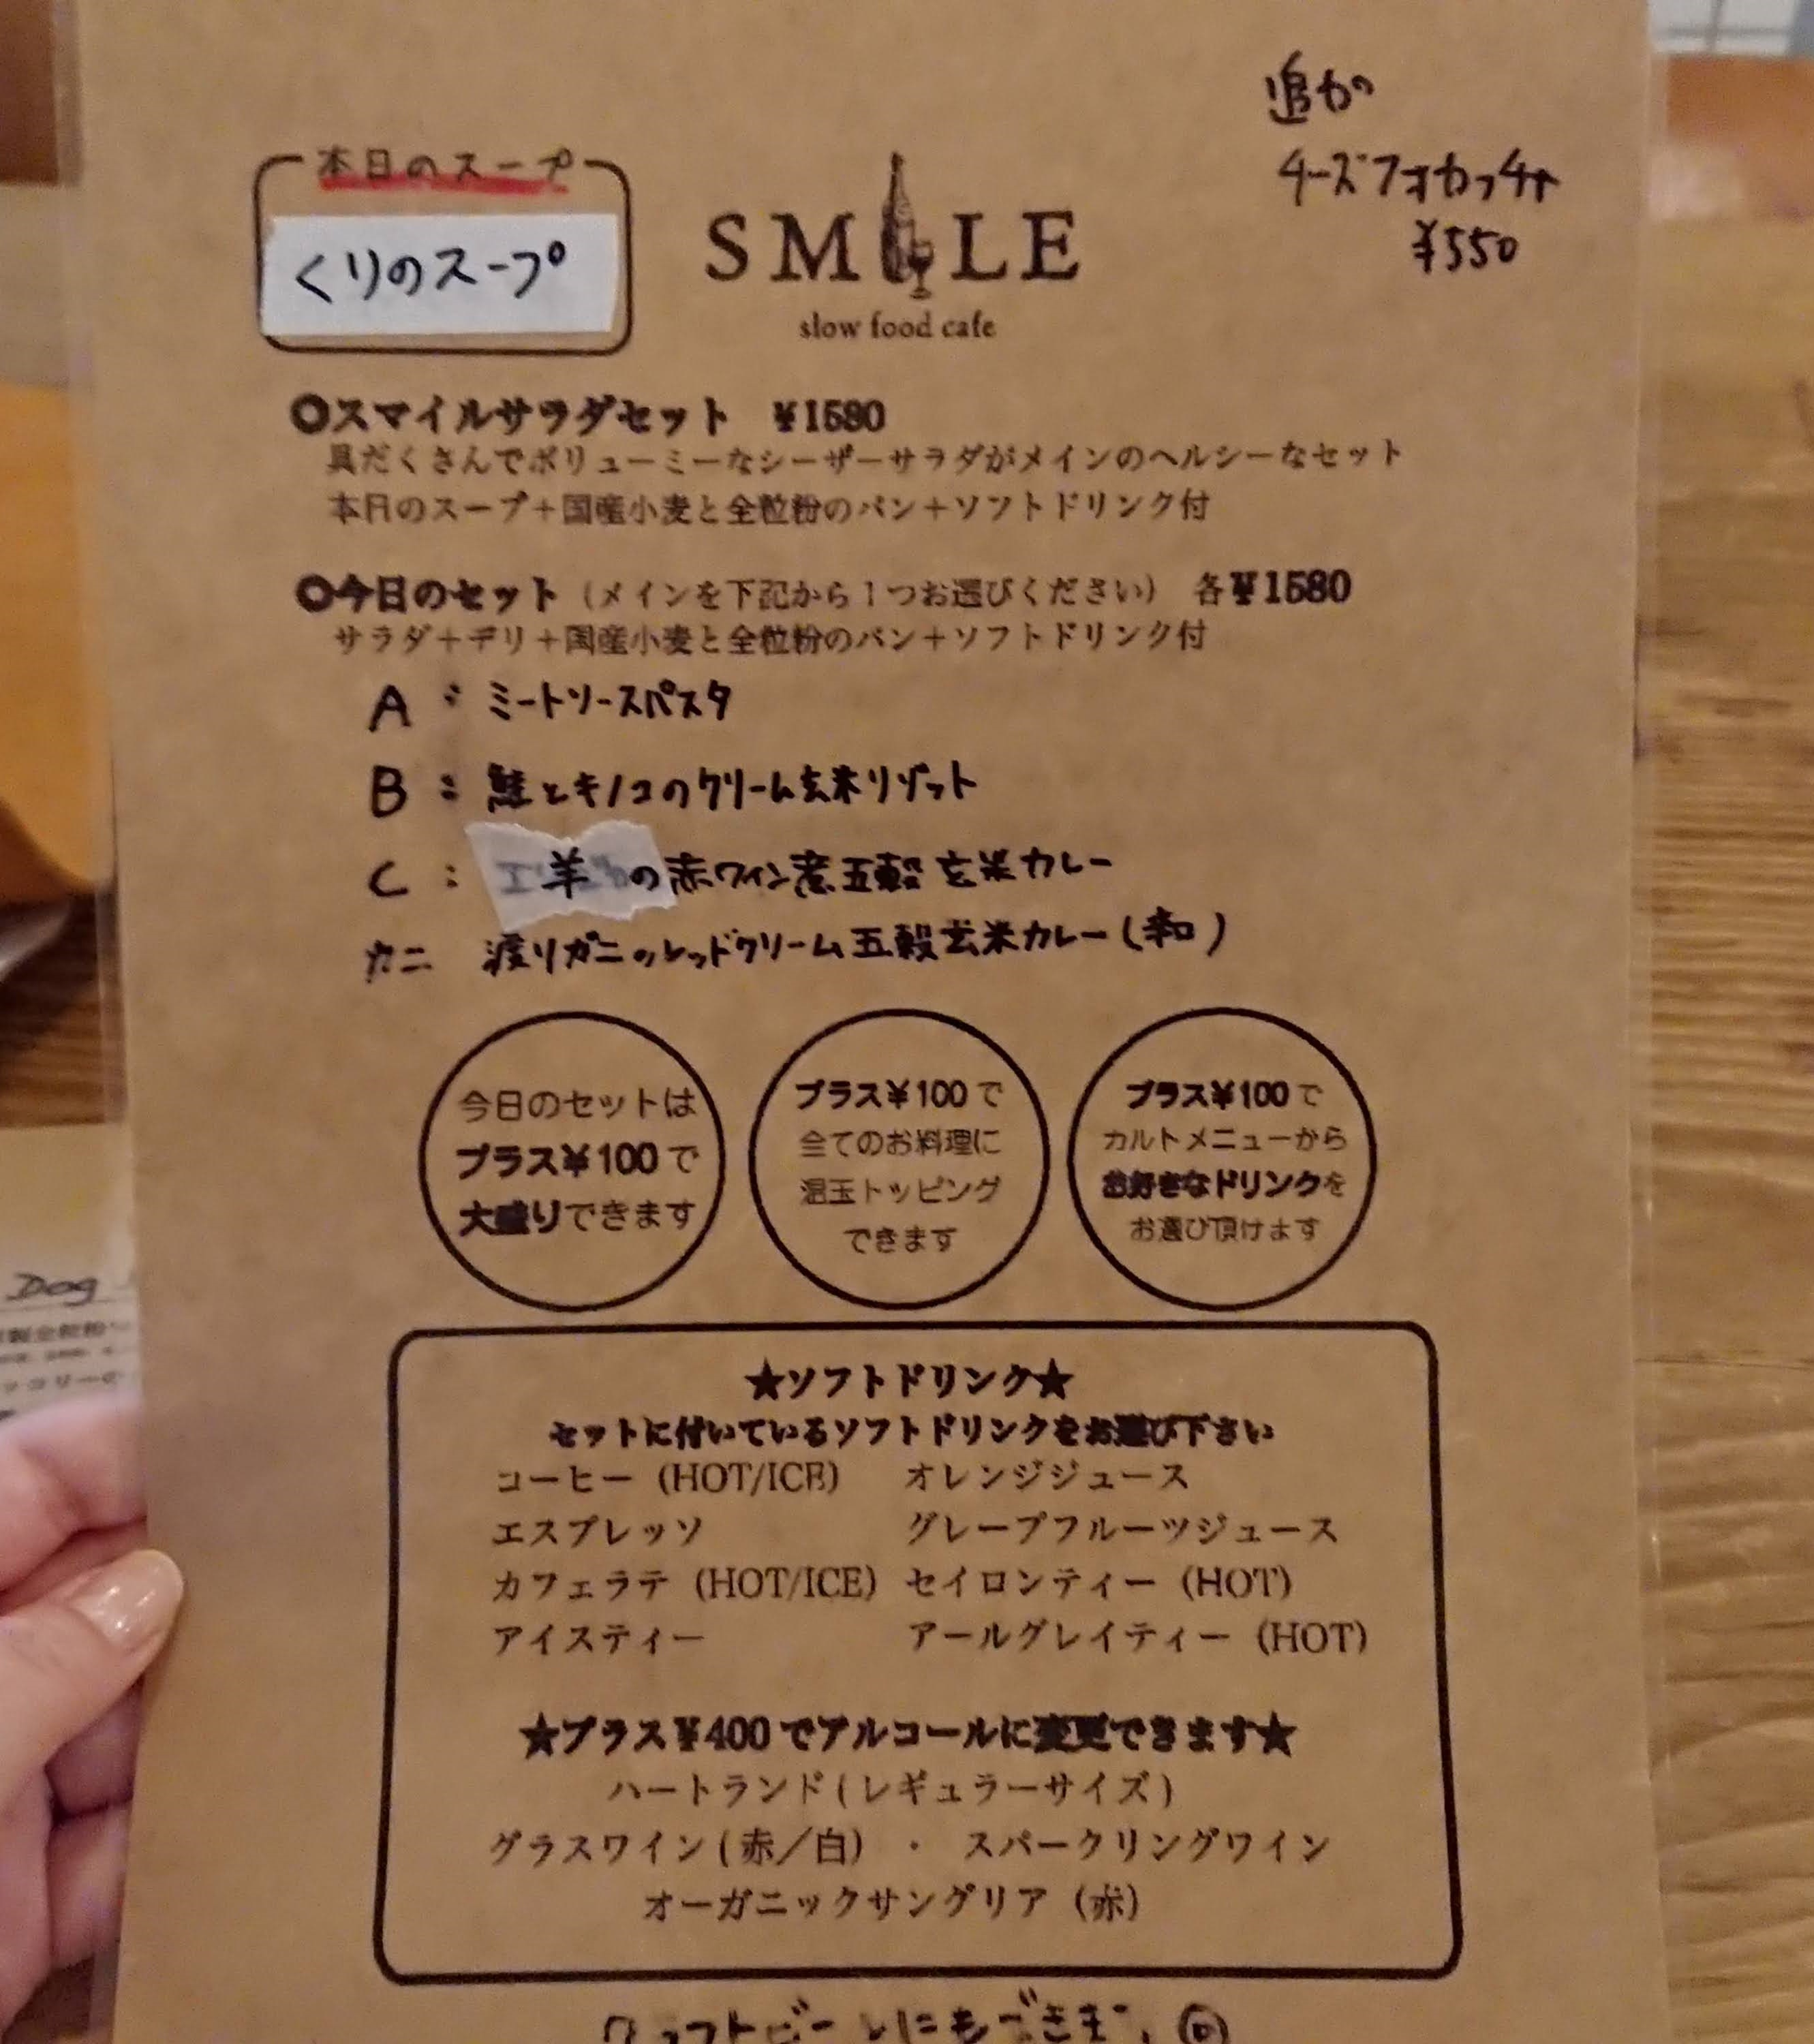 追加
チーズフォカッチャ
¥550
本日のスープ
くりのスープ
SMILE
slow food cafe
◎スマイルサラダセット ¥1580
具だくさんでボリューミーなシーザーサラダがメインのヘルシーなセット
本日のスープ+国産小麦と全粒粉のパン+ソフトドリンク付
◎今日のセット（メインを下記から1つお選びください） 各¥1580
サラダ+デリ+国産小麦と全粒粉のパン+ソフトドリンク付
A : ミートソースパスタ
B : 鮭とキノコのクリーム玄米リゾット
C : 羊の赤ワイン煮五穀玄米カレー
カニ 渡りガニのレッドクリーム五穀玄米カレー(辛口)
今日のセットは
プラス¥100で
大盛りできます
プラス¥100で
全てのお料理に
温玉トッピング
できます
プラス¥100で
カルトメニューから
お好きなドリンクを
お選び頂けます
★ソフトドリンク★
セットに付いているソフトドリンクをお選び下さい
コーヒー (HOT/ICE) オレンジジュース
エスプレッソ グレープフルーツジュース
カフェラテ (HOT/ICE) セイロンティー (HOT)
アイスティー アールグレイティー (HOT)
★プラス¥400でアルコールに変更できます★
ハートランド(レギュラーサイズ)
グラスワイン(赤／白) ・ スパークリングワイン
オーガニックサングリア (赤)
Dog